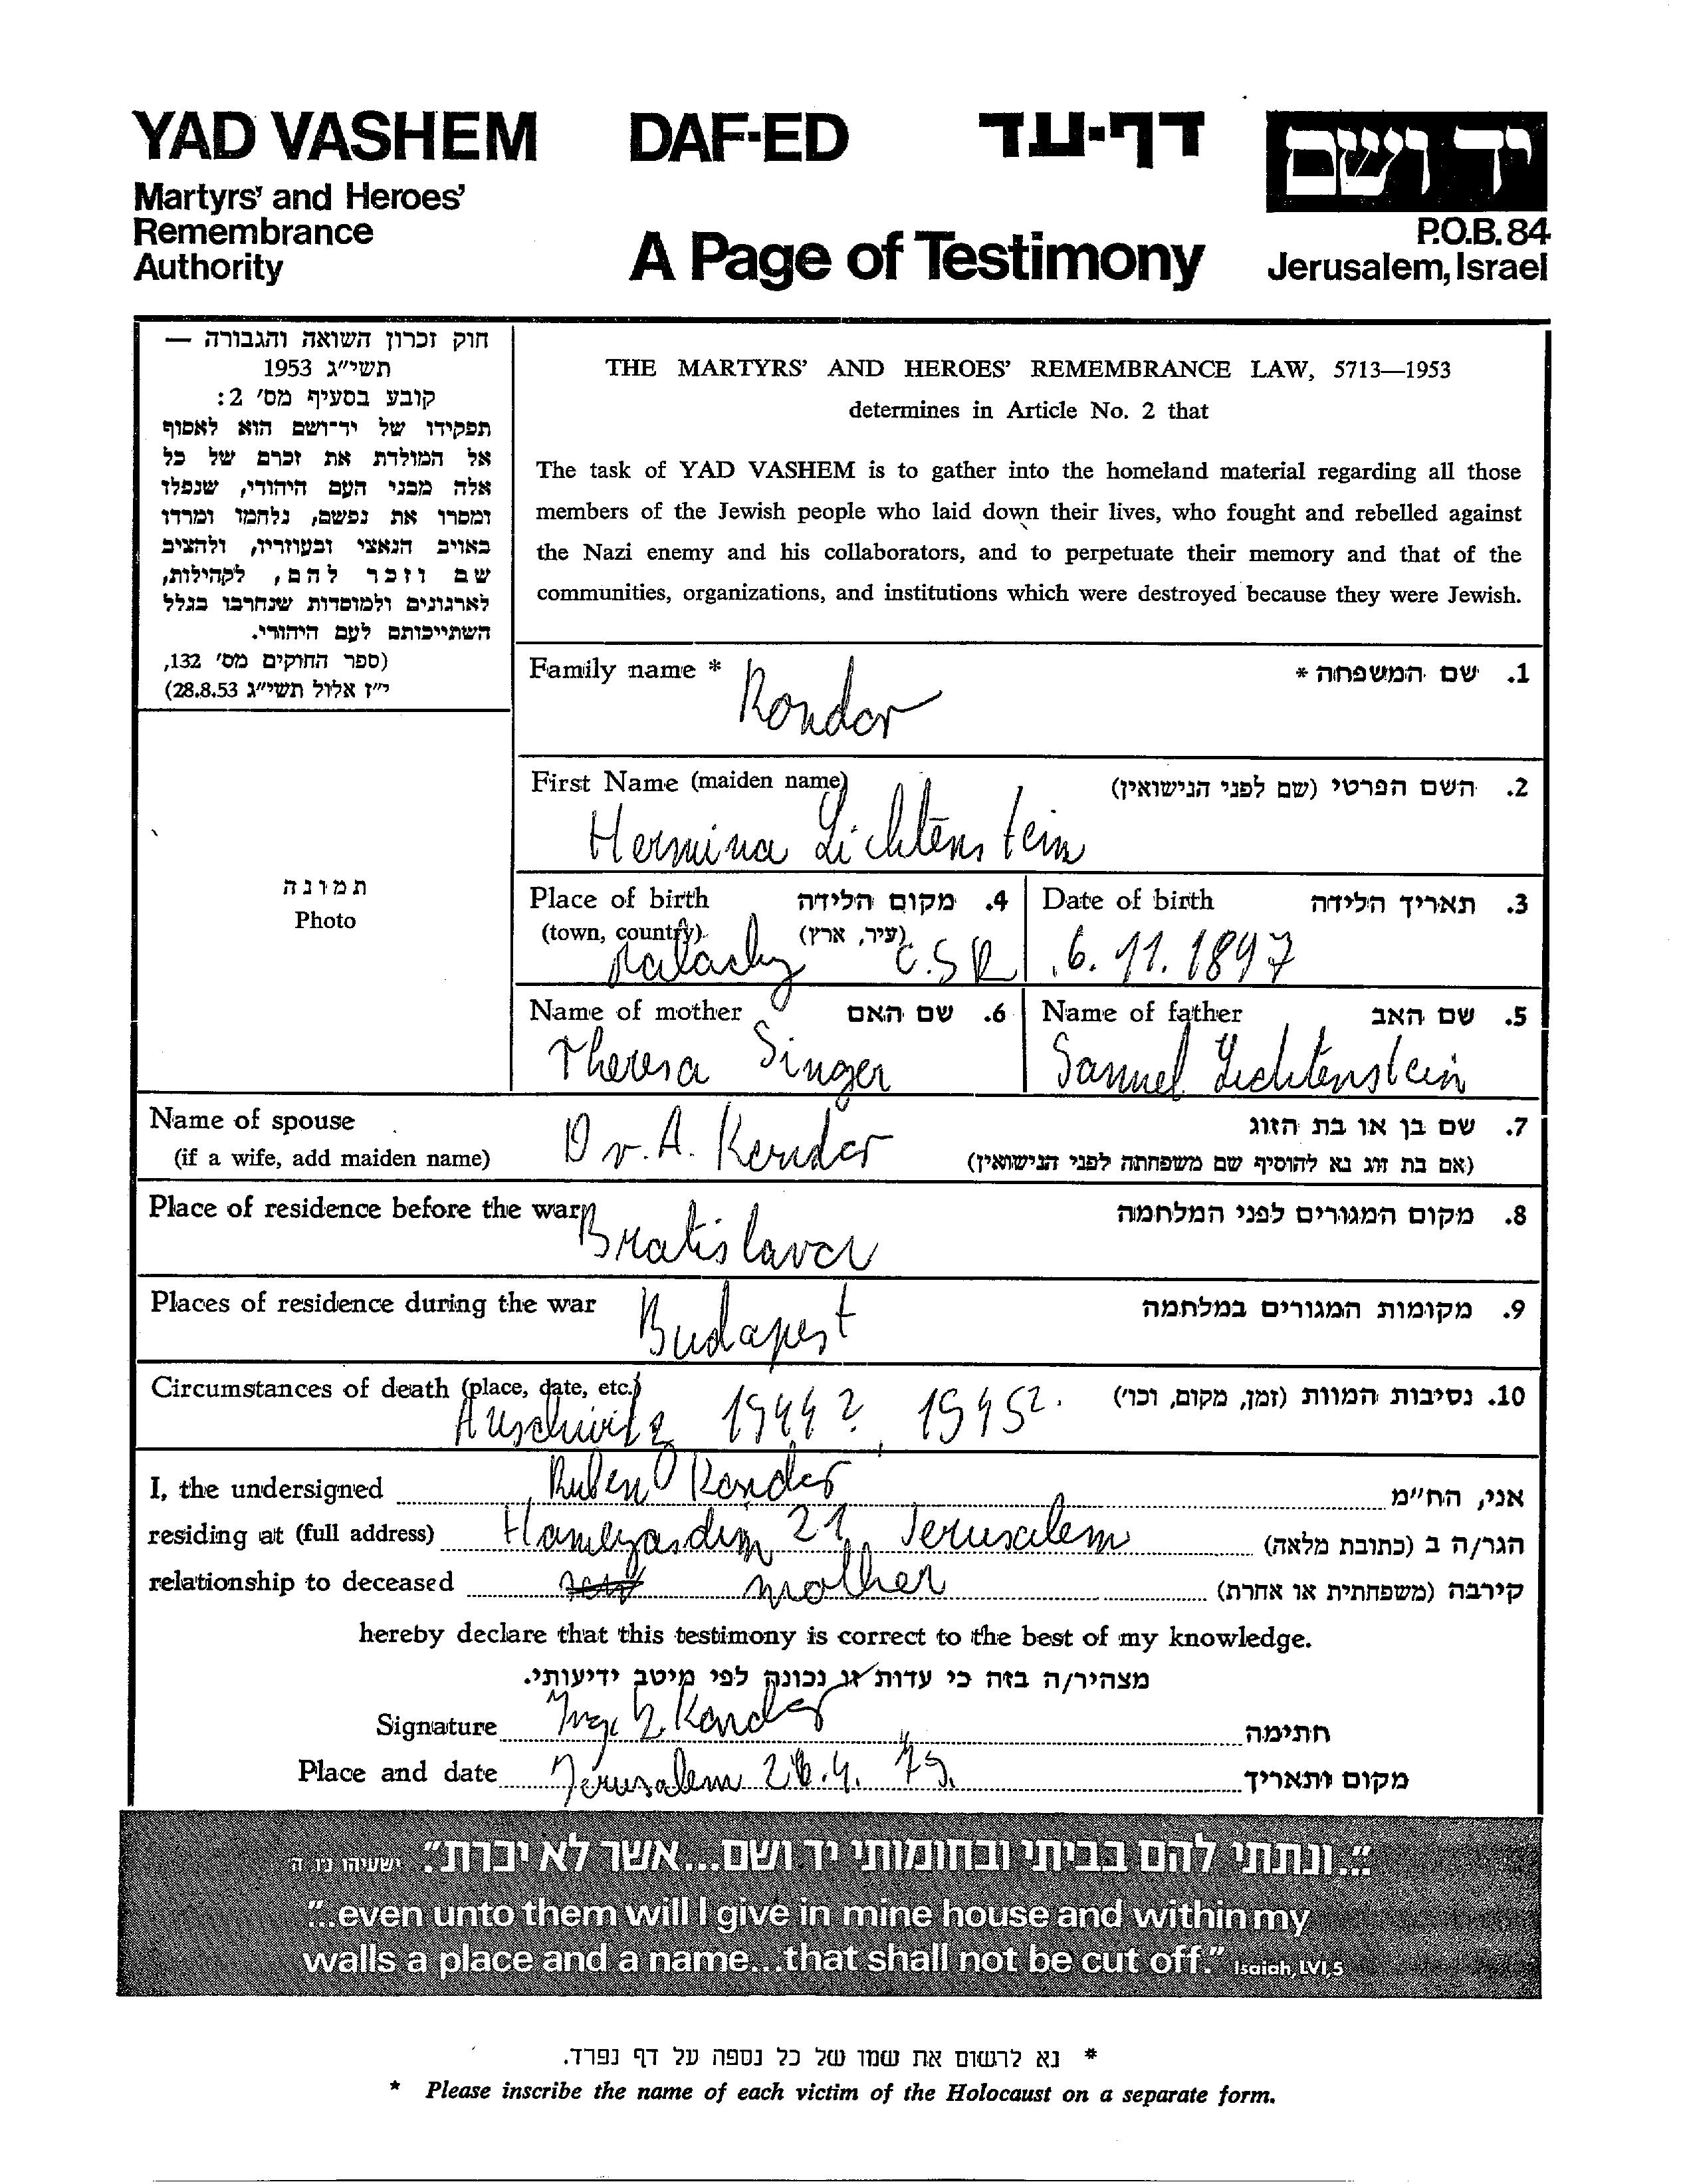 YAD VASHEM
Martyrs' and Heroes'
Remembrance
Authority
DAF-ED דף-עד
A Page of Testimony
יד ושם
P.O.B. 84
Jerusalem, Israel
חוק זכרון השואה והגבורה —
תשי"ג 1953
קובע בסעיף מס' 2:
תפקידו של יד־ושם הוא לאסוף
אל המולדת את זכרם של כל
אלה מבני העם היהודי, שנפלו
ומסרו את נפשם, נלחמו ומרדו
באויב הנאצי ובעוזריו, ולהציב
שם וזכר להם, לקהילות,
לארגונים ולמוסדות שנחרבו בגלל
השתייכותם לעם היהודי.
(ספר החוקים מס' 132,
י"ז אלול תשי"ג 28.8.53)
THE MARTYRS' AND HEROES' REMEMBRANCE LAW, 5713—1953
determines in Article No. 2 that
The task of YAD VASHEM is to gather into the homeland material regarding all those
members of the Jewish people who laid down their lives, who fought and rebelled against
the Nazi enemy and his collaborators, and to perpetuate their memory and that of the
communities, organizations, and institutions which were destroyed because they were Jewish.
תמונה
Photo
Family name * 1. שם המשפחה *
Kondor
First Name (maiden name) 2. השם הפרטי (שם לפני הנישואין)
Hermina Lichtenstein
Place of birth 4. מקום הלידה
(town, country) (עיר, ארץ)
Malacky C.S R
Date of birth 3. תאריך הלידה
6. 11. 1897
Name of mother 6. שם האם
Theresa Singer
Name of father 5. שם האב
Samuel Lichtenstein
Name of spouse 7. שם בן או בת הזוג
(if a wife, add maiden name) Dr. A. Kondor (אם בת זוג נא להוסיף שם משפחתה לפני הנישואין)
Place of residence before the war 8. מקום המגורים לפני המלחמה
Bratislava
Places of residence during the war 9. מקומות המגורים במלחמה
Budapest
Circumstances of death (place, date, etc.) 10. נסיבות המוות (זמן, מקום, וכו')
Auschwitz 1944? 1945?.
I, the undersigned Ruben Kondor אני, הח"מ
residing at (full address) 21 Jerusalem הגר/ה ב (כתובת מלאה)
relationship to deceased mother קירבה (משפחתית או אחרת)
hereby declare that this testimony is correct to the best of my knowledge.
מצהיר/ה בזה כי עדות זו נכונה לפי מיטב ידיעותי.
Signature Kondor חתימה
Place and date Jerusalem 26.4. 75. מקום ותאריך
"...ונתתי להם בביתי ובחומותי יד ושם...אשר לא יכרת". ישעיהו נ"ו, ה
"...even unto them will I give in mine house and within my
walls a place and a name...that shall not be cut off." Isaiah, LVI, 5
* נא לרשום את שמו של כל נספה על דף נפרד.
* Please inscribe the name of each victim of the Holocaust on a separate form.